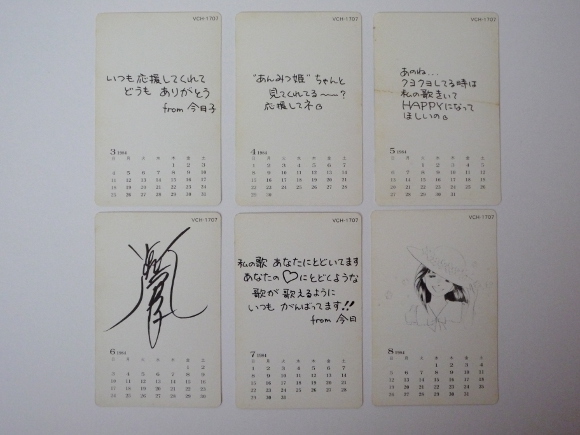 VCH-1707
いつも応援してくれて
どうも ありがとう
from 今日子
3 1984
日 月 火 水 木 金 土
1 2 3
4 5 6 7 8 9 10
11 12 13 14 15 16 17
18 19 20 21 22 23 24
25 26 27 28 29 30 31
VCH-1707
"あんみつ姫"ちゃんと
見てくれてる〜〜?
応援してネ
4 1984
日 月 火 水 木 金 土
1 2 3 4 5 6 7
8 9 10 11 12 13 14
15 16 17 18 19 20 21
22 23 24 25 26 27 28
29 30
VCH-1707
あのね...
クヨクヨしてる時は
私の歌きいて
HAPPYになって
ほしいの
5 1984
日 月 火 水 木 金 土
1 2 3 4 5
6 7 8 9 10 11 12
13 14 15 16 17 18 19
20 21 22 23 24 25 26
27 28 29 30 31
VCH-1707
6 1984
日 月 火 水 木 金 土
1 2
3 4 5 6 7 8 9
10 11 12 13 14 15 16
17 18 19 20 21 22 23
24 25 26 27 28 29 30
VCH-1707
私の歌 あなたにとどいてます
あなたの♡にとどくような
歌が 歌えるように
いつも がんばってます!!
from 今日
7 1984
日 月 火 水 木 金 土
1 2 3 4 5 6 7
8 9 10 11 12 13 14
15 16 17 18 19 20 21
22 23 24 25 26 27 28
29 30 31
VCH-1707
8 1984
日 月 火 水 木 金 土
1 2 3 4
5 6 7 8 9 10 11
12 13 14 15 16 17 18
19 20 21 22 23 24 25
26 27 28 29 30 31